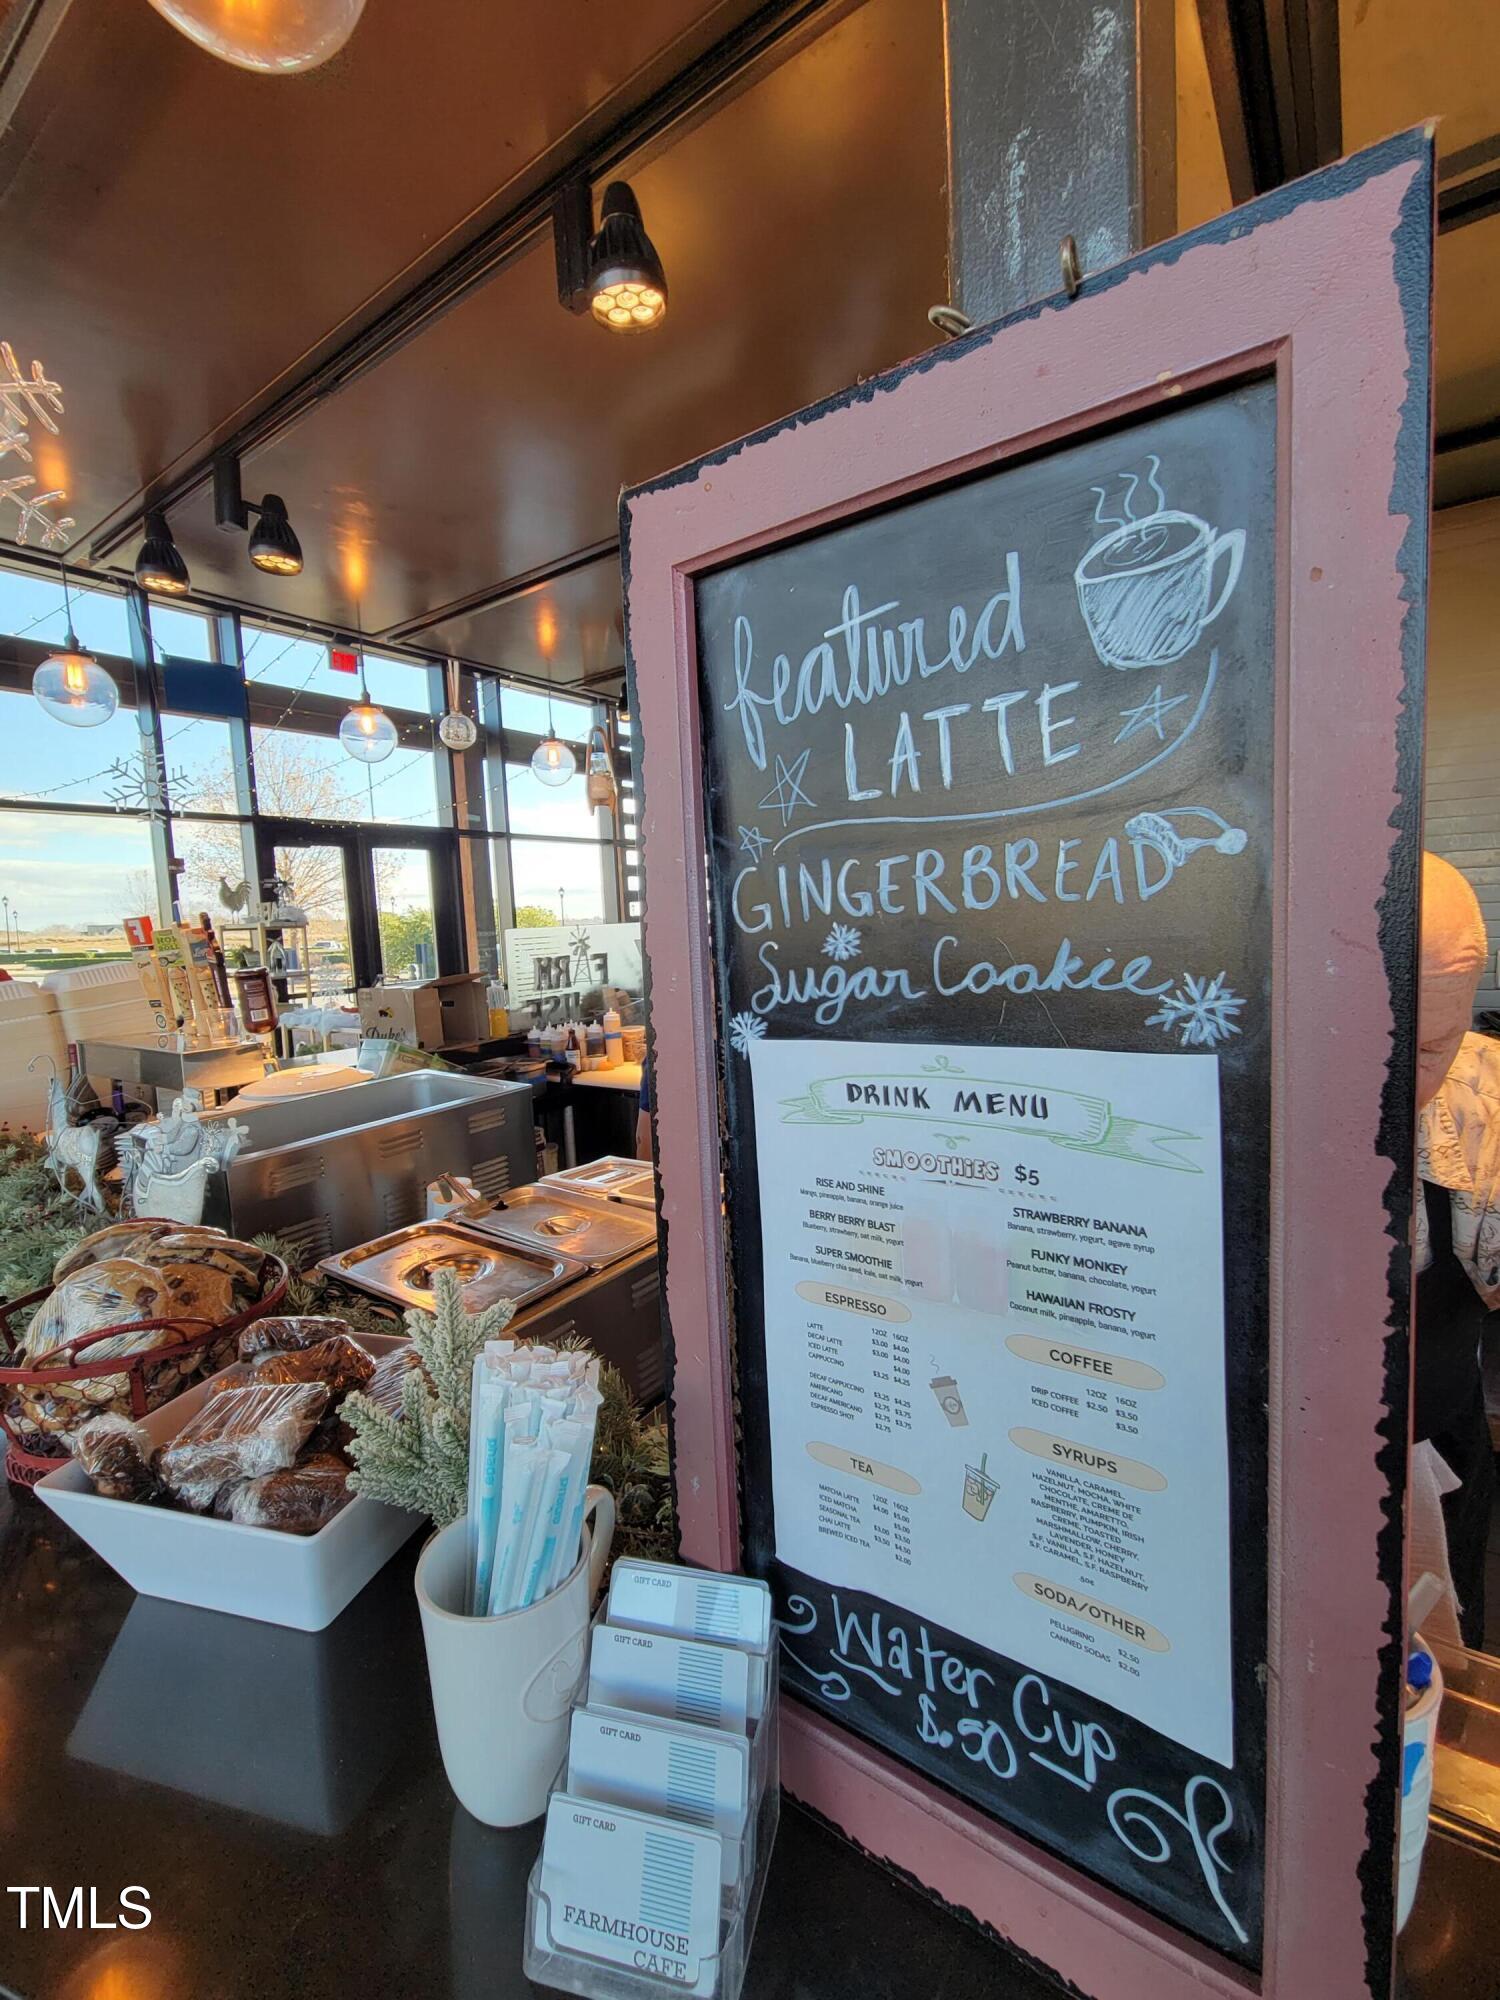 featured
LATTE
GINGERBREAD
Sugar Cookie
DRINK MENU
SMOOTHIES $5
RISE AND SHINE
Mango, pineapple, banana, orange juice
BERRY BERRY BLAST
Blueberry, strawberry, oat milk, yogurt
SUPER SMOOTHIE
Banana, blueberry chia seed, kale, oat milk, yogurt
STRAWBERRY BANANA
Banana, strawberry, yogurt, agave syrup
FUNKY MONKEY
Peanut butter, banana, chocolate, yogurt
HAWAIIAN FROSTY
Coconut milk, pineapple, banana, yogurt
ESPRESSO
12OZ 16OZ
LATTE $3.00 $4.00
DECAF LATTE $3.00 $4.00
ICED LATTE $4.00
CAPPUCCINO $3.25 $4.25
DECAF CAPPUCCINO $3.25 $4.25
AMERICANO $2.75 $3.75
DECAF AMERICANO $2.75 $3.75
ESPRESSO SHOT $2.75
TEA
12OZ 16OZ
MATCHA LATTE $4.00 $5.00
ICED MATCHA $5.00
SEASONAL TEA $3.00 $3.50
CHAI LATTE $3.50 $4.50
BREWED ICED TEA $2.00
COFFEE
12OZ 16OZ
DRIP COFFEE $2.50 $3.50
ICED COFFEE $3.50
SYRUPS
VANILLA, CARAMEL,
HAZELNUT, MOCHA, WHITE
CHOCOLATE, CREME DE
MENTHE, AMARETTO,
RASPBERRY, PUMPKIN, IRISH
CREME, TOASTED
MARSHMALLOW, CHERRY,
LAVENDER, HONEY
S.F. VANILLA, S.F. HAZELNUT,
S.F. CARAMEL, S.F. RASPBERRY
.50¢
SODA/OTHER
PELLIGRINO $2.50
CANNED SODAS $2.00
Water Cup
$.50
GIFT CARD
GIFT CARD
GIFT CARD
GIFT CARD
FARMHOUSE
CAFE
Duke's
TMLS